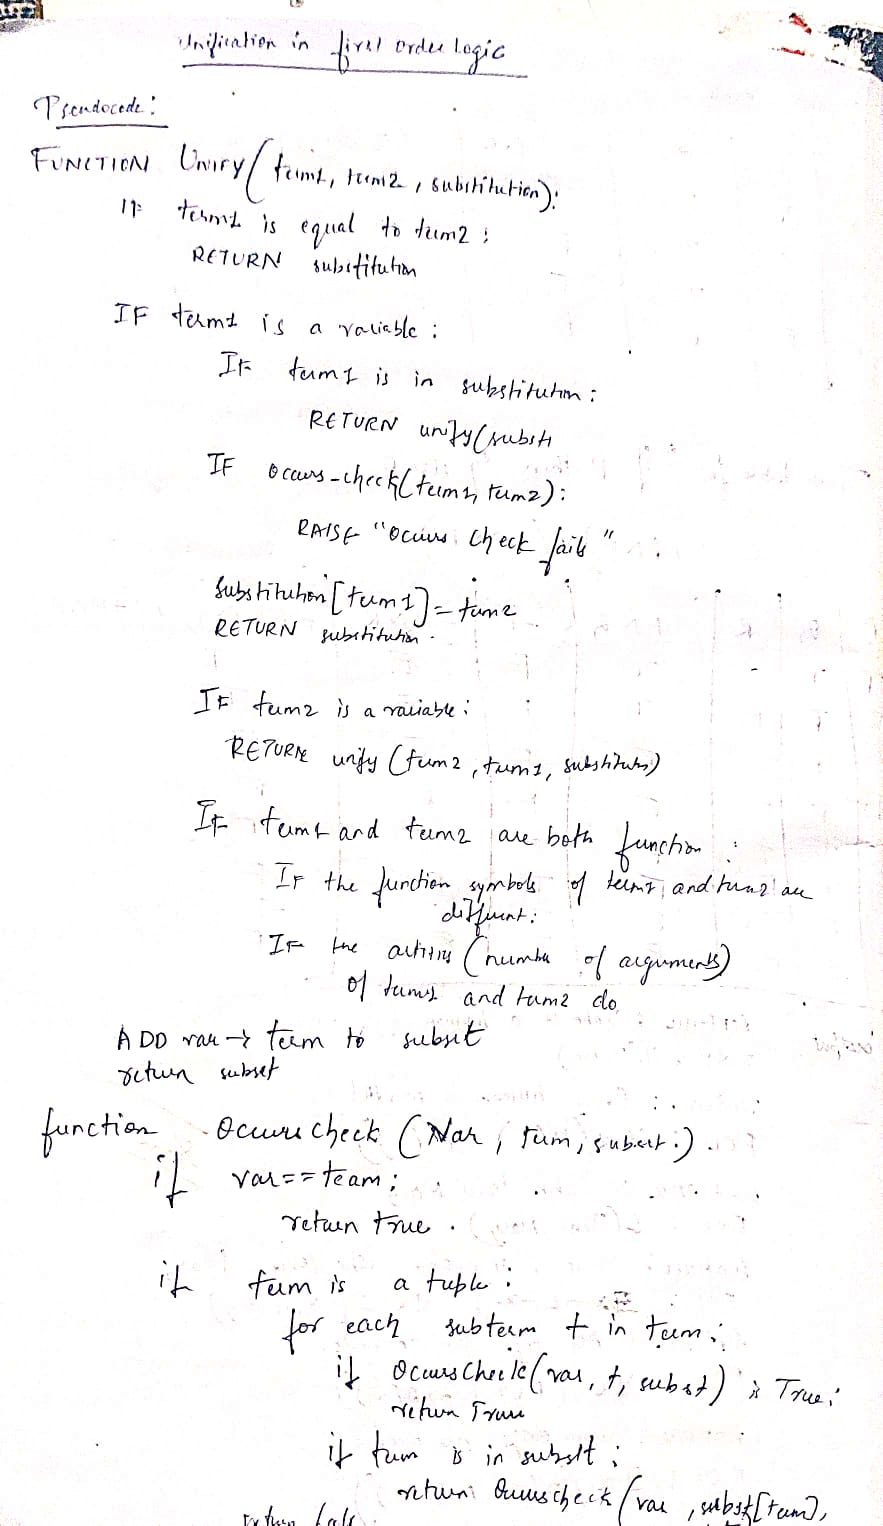 Unification in first order logic
Pseudocode:
FUNCTION Unify(term1, term2, substitution):
IF term1 is equal to term2:
RETURN substitution
IF term1 is a variable:
IF term1 is in substitution:
RETURN unify(subst
IF occurs-check(term1, term2):
RAISE "occurs check fails"
Substitution[term1] = term2
RETURN substitution.
IF term2 is a variable:
RETURN unify (term2, term1, substitution)
IF term1 and term2 are both function:
IF the function symbols of term1 and term2 are
different:
IF the arities (number of arguments)
of term1 and term2 do
ADD var → term to subset
return subset
function Occurs check (Var, term, subset:).
if var == team:
return true.
if term is a tuple:
for each subterm t in term:
if Occurs Check(var, t, subst) is True:
return True
if term is in subst:
return Occurs check (var, subst[term],
return false